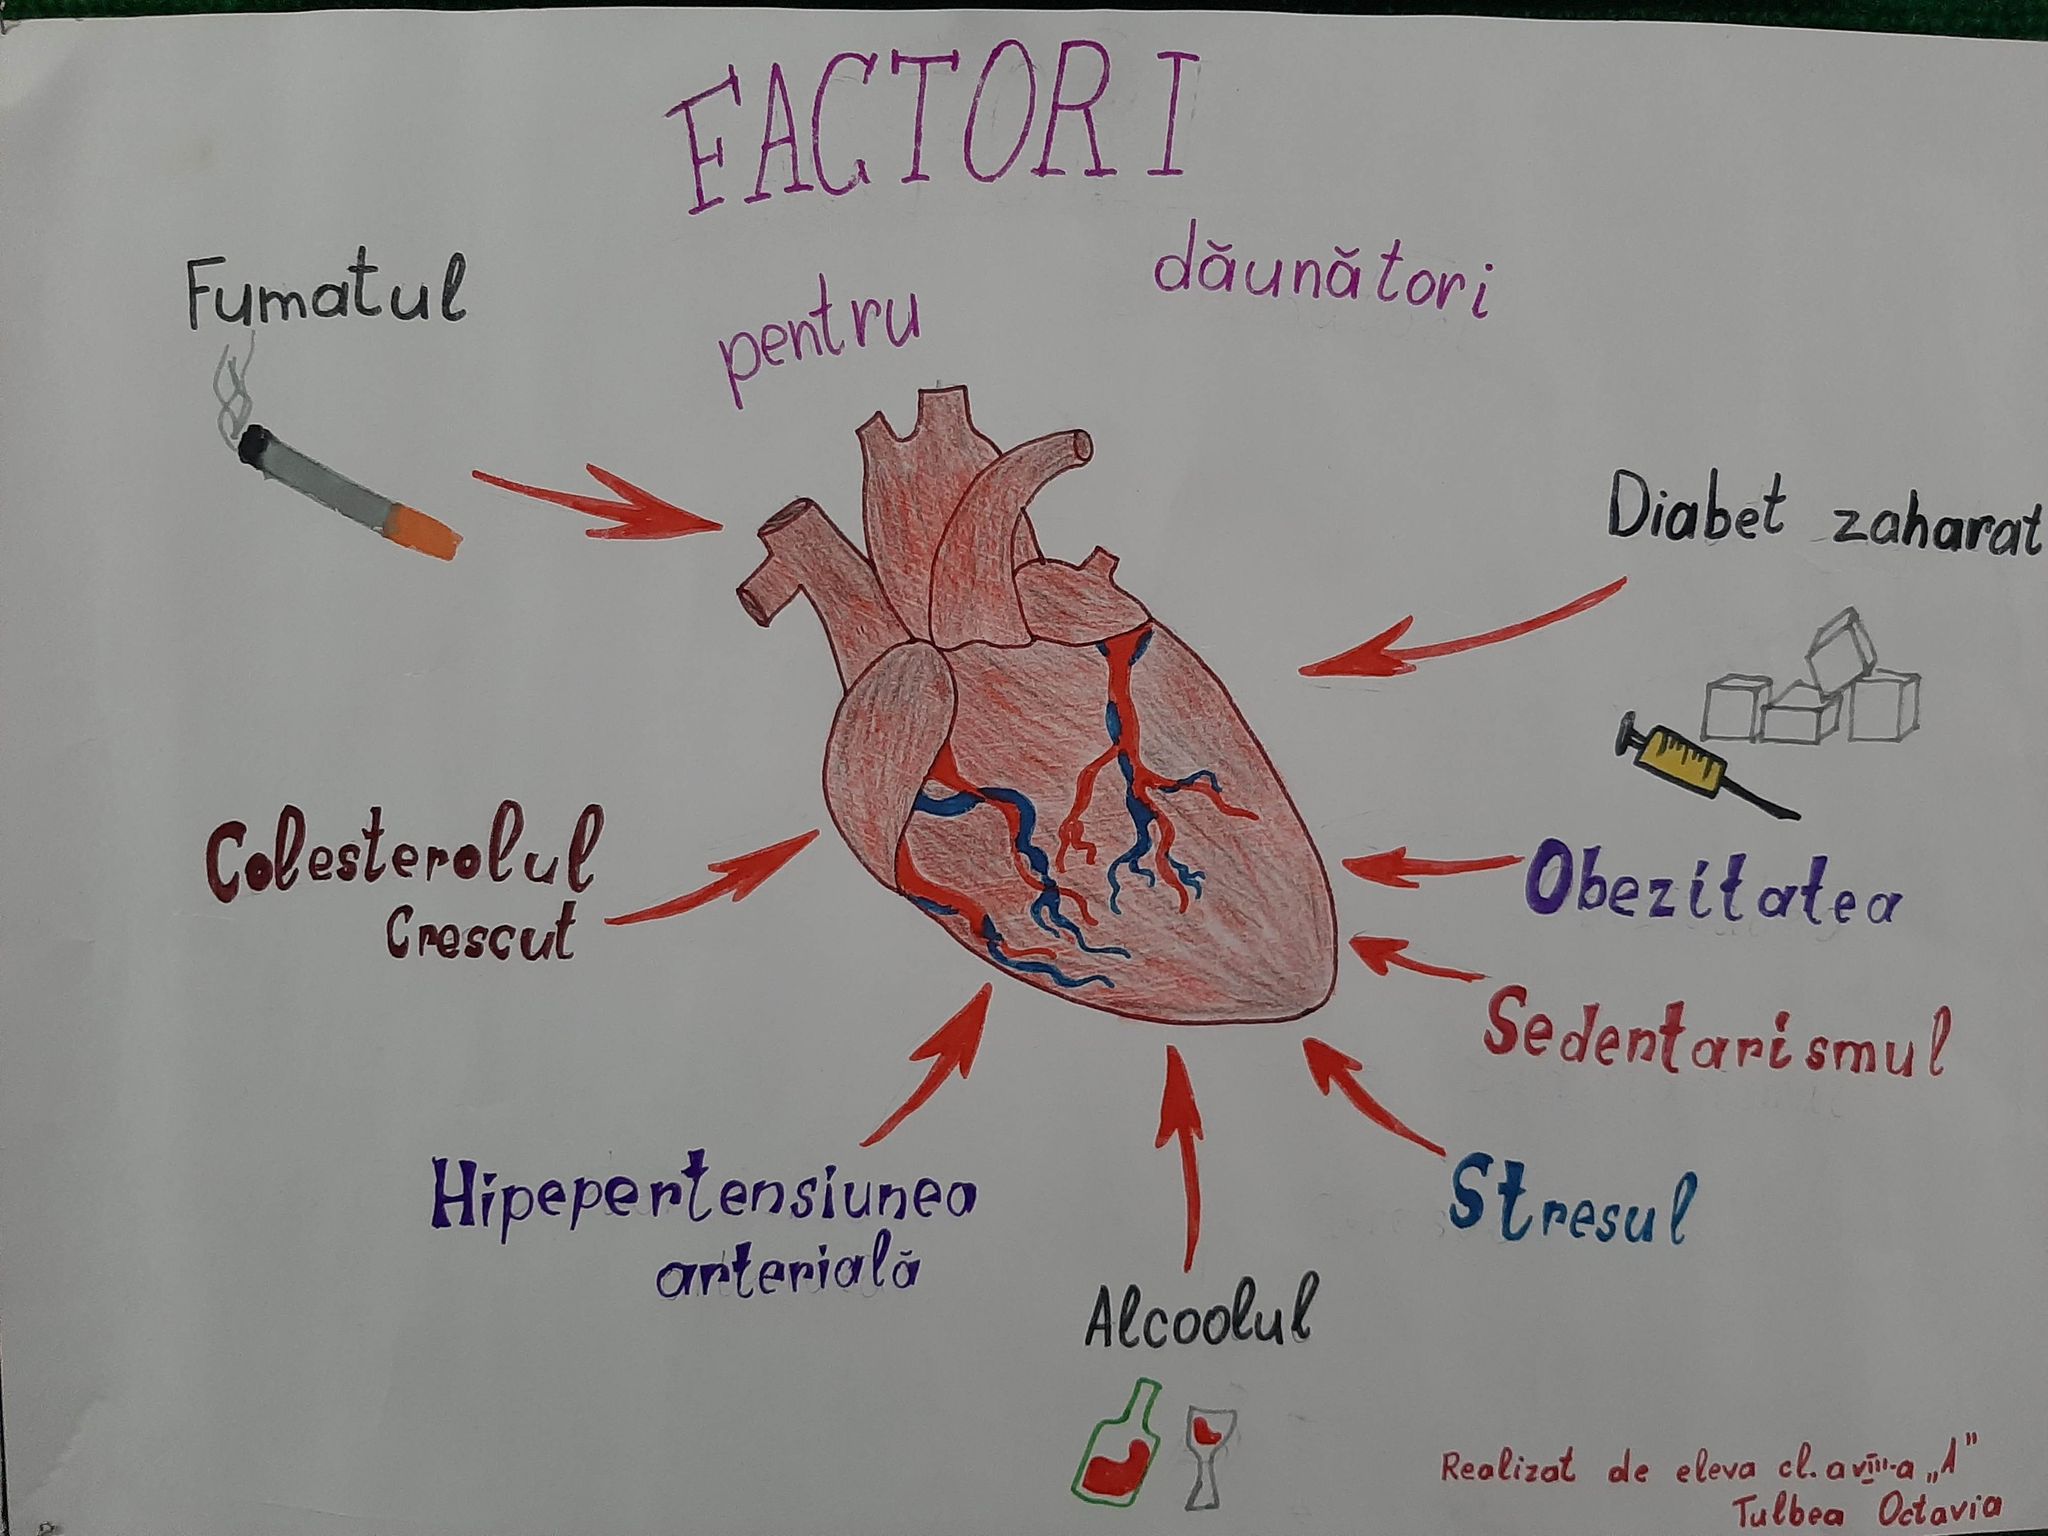 FACTORI
dăunători
pentru
Fumatul
Diabet zaharat
Colesterolul
Crescut
Obezitatea
Sedentarismul
Hipepertensiunea
arterială
Stresul
Alcoolul
Realizat de eleva cl. a VIII-a „A"
Tulbea Octavia